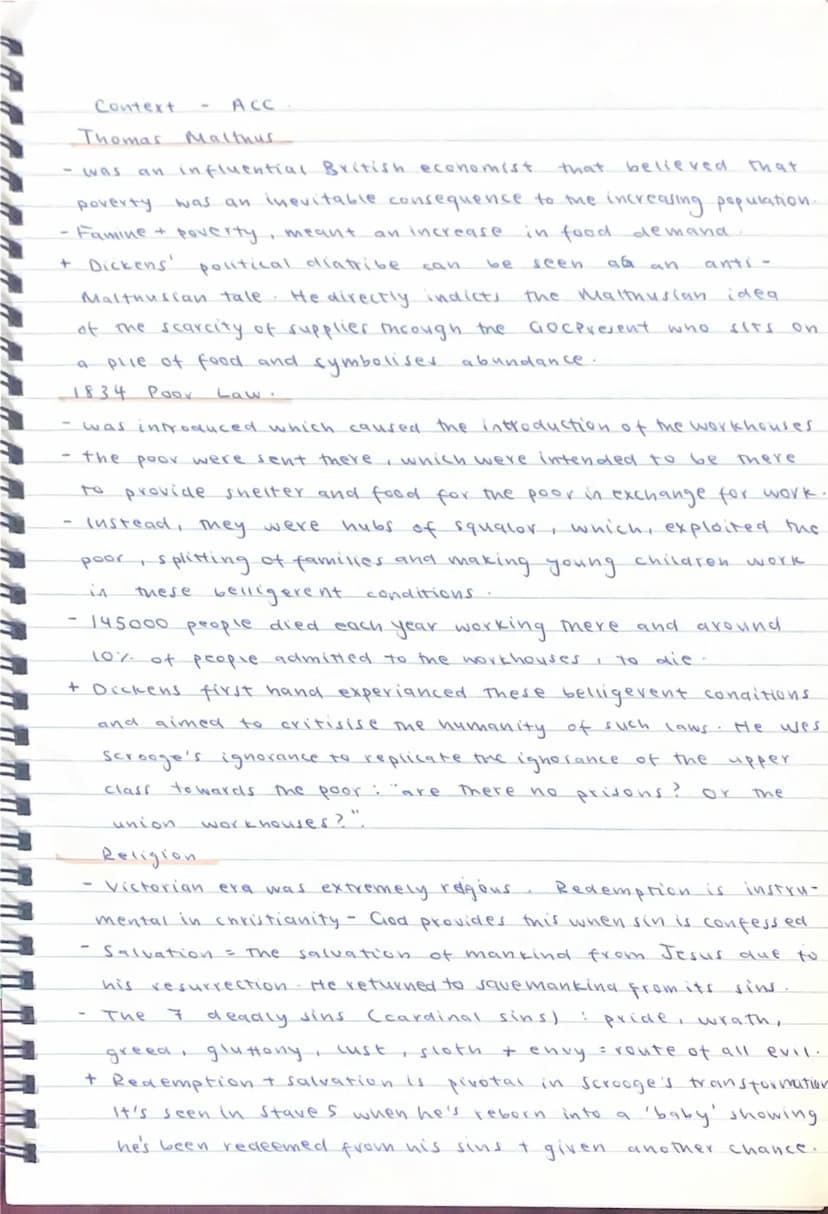 Context - ACC.
Thomas Malthus
- was an influential British economist that believed that
poverty was an inevitable consequence to the increasing population.
- Famine + poverty, meant an increase in food demand.
+ Dickens' political diatribe can be seen as an anti-
Malthusian tale. He directly indicts the Malthusian idea
of the scarcity of supplies through the GOCPresent who sits on
a pile of food and symbolises abundance.
1834 Poor Law.
- was introduced which caused the introduction of the workhouses
- the poor were sent there, which were intended to be there
to provide shelter and food for the poor in exchange for work.
- Instead, they were hubs of squalor, which, exploited the
poor, splitting of families and making young children work
in these belligerent conditions.
- 145000 people died each year working there and around
10% of people admitted to the workhouses, to die.
+ Dickens first hand experianced these belligerent conditions
and aimed to critisise the humanity of such laws. He uses
Scrooge's ignorance to replicate the ignorance of the upper
class towards the poor: "are there no prisons? Or the
union workhouses?".
Religion
- Victorian era was extremely religous. Redemption is instru-
mental in christianity - God provides this when sin is confessed
- Salvation = The salvation of mankind from Jesus due to
his resurrection. He returned to save mankind from its sins.
- The 7 deadly sins (cardinal sins): pride, wrath,
greed, gluttony, lust, sloth + envy = route of all evil.
+ Redemption + salvation is pivotal in Scrooge's transformation
It's seen in Stave 5 when he's reborn into a 'baby' showing
he's been redeemed from his sins + given another chance.